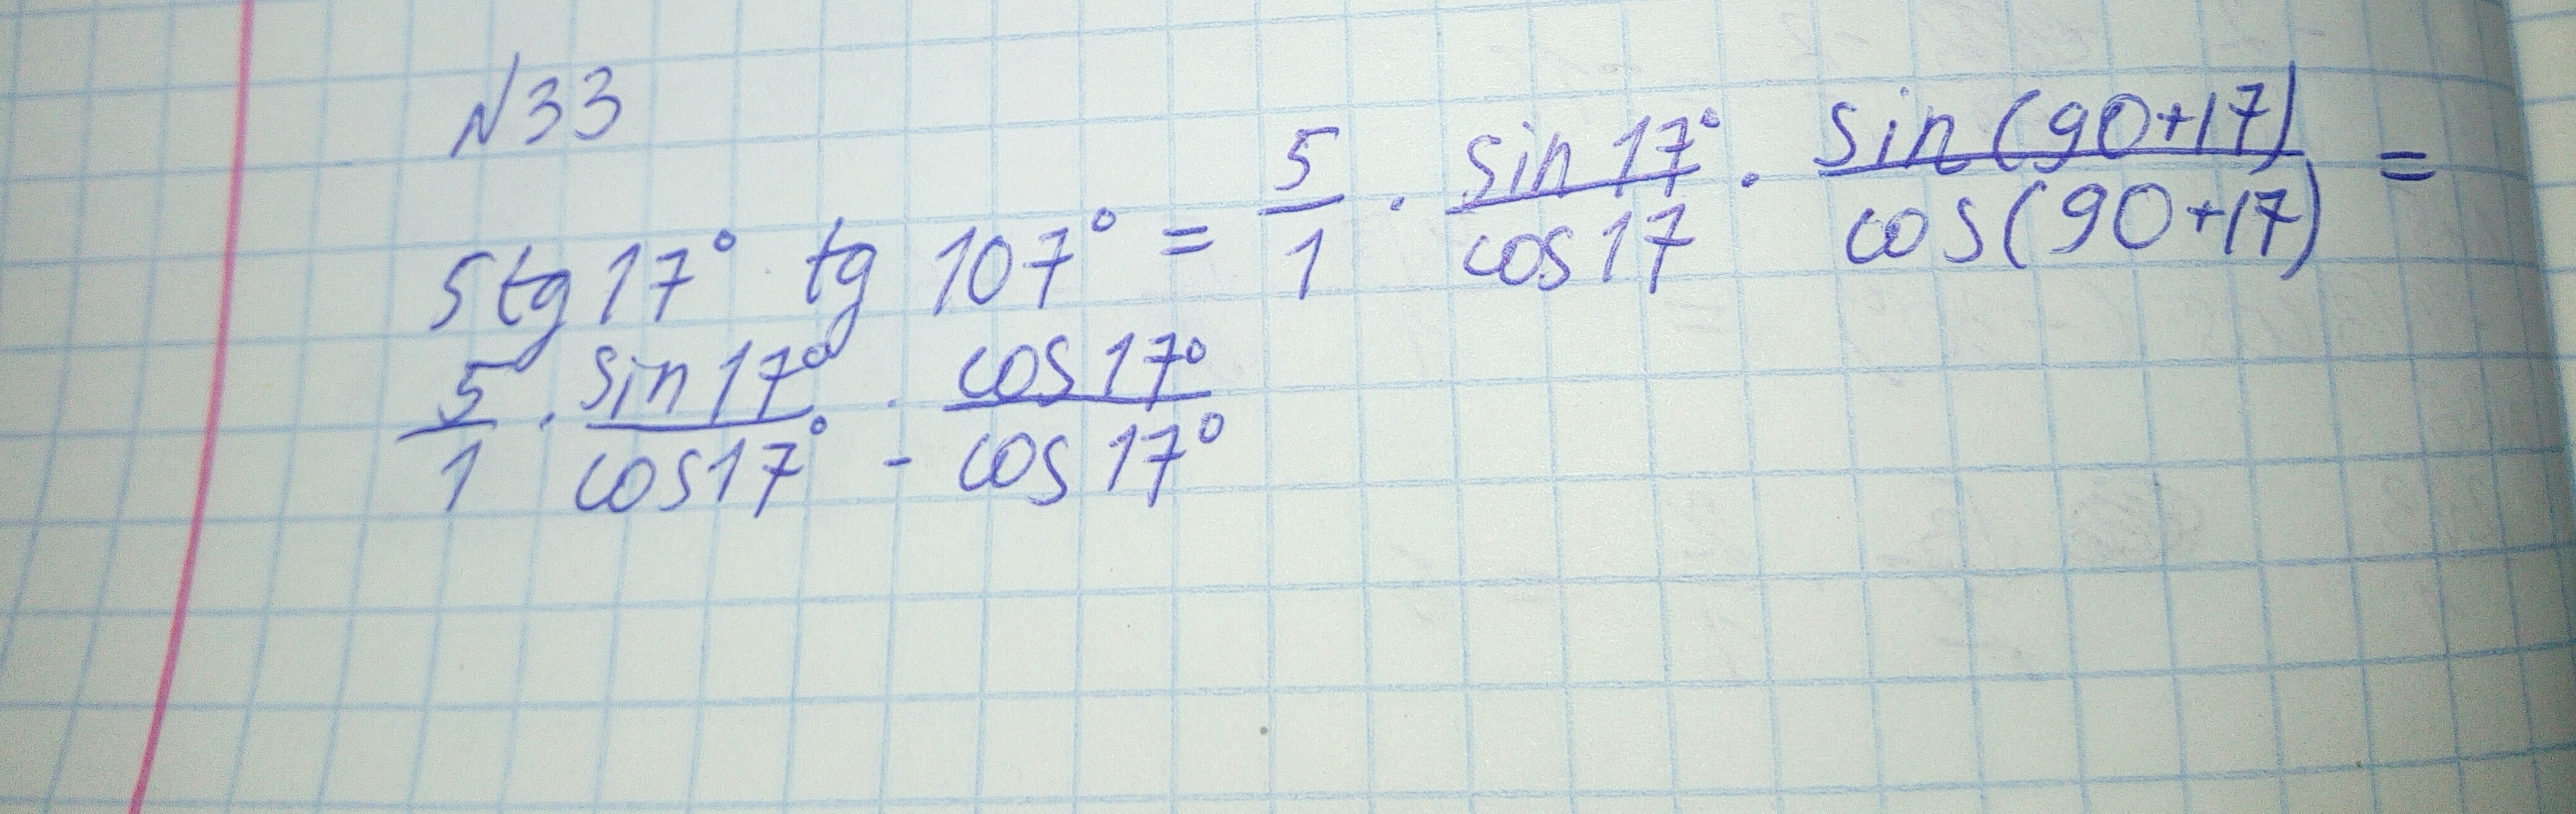 N33
5tg17° tg 107° = 5/1 · sin 17°/cos 17 · sin(90+17)/cos(90+17) =
5/1 · sin 17°/cos17° · cos 17°/-cos 17°